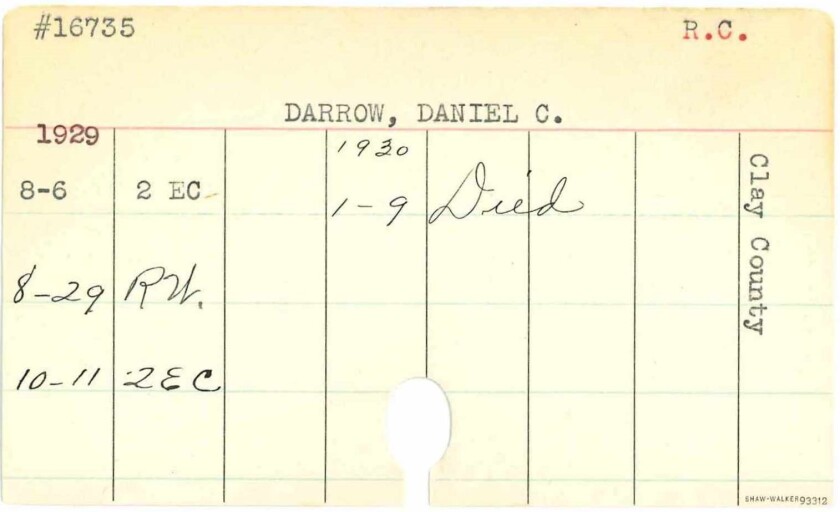 #16735 R.C.
DARROW, DANIEL C.
1929 1930
8-6 2 EC 1-9 Died
8-29 R.W.
10-11 2EC
Clay County
SHAW-WALKER 93312